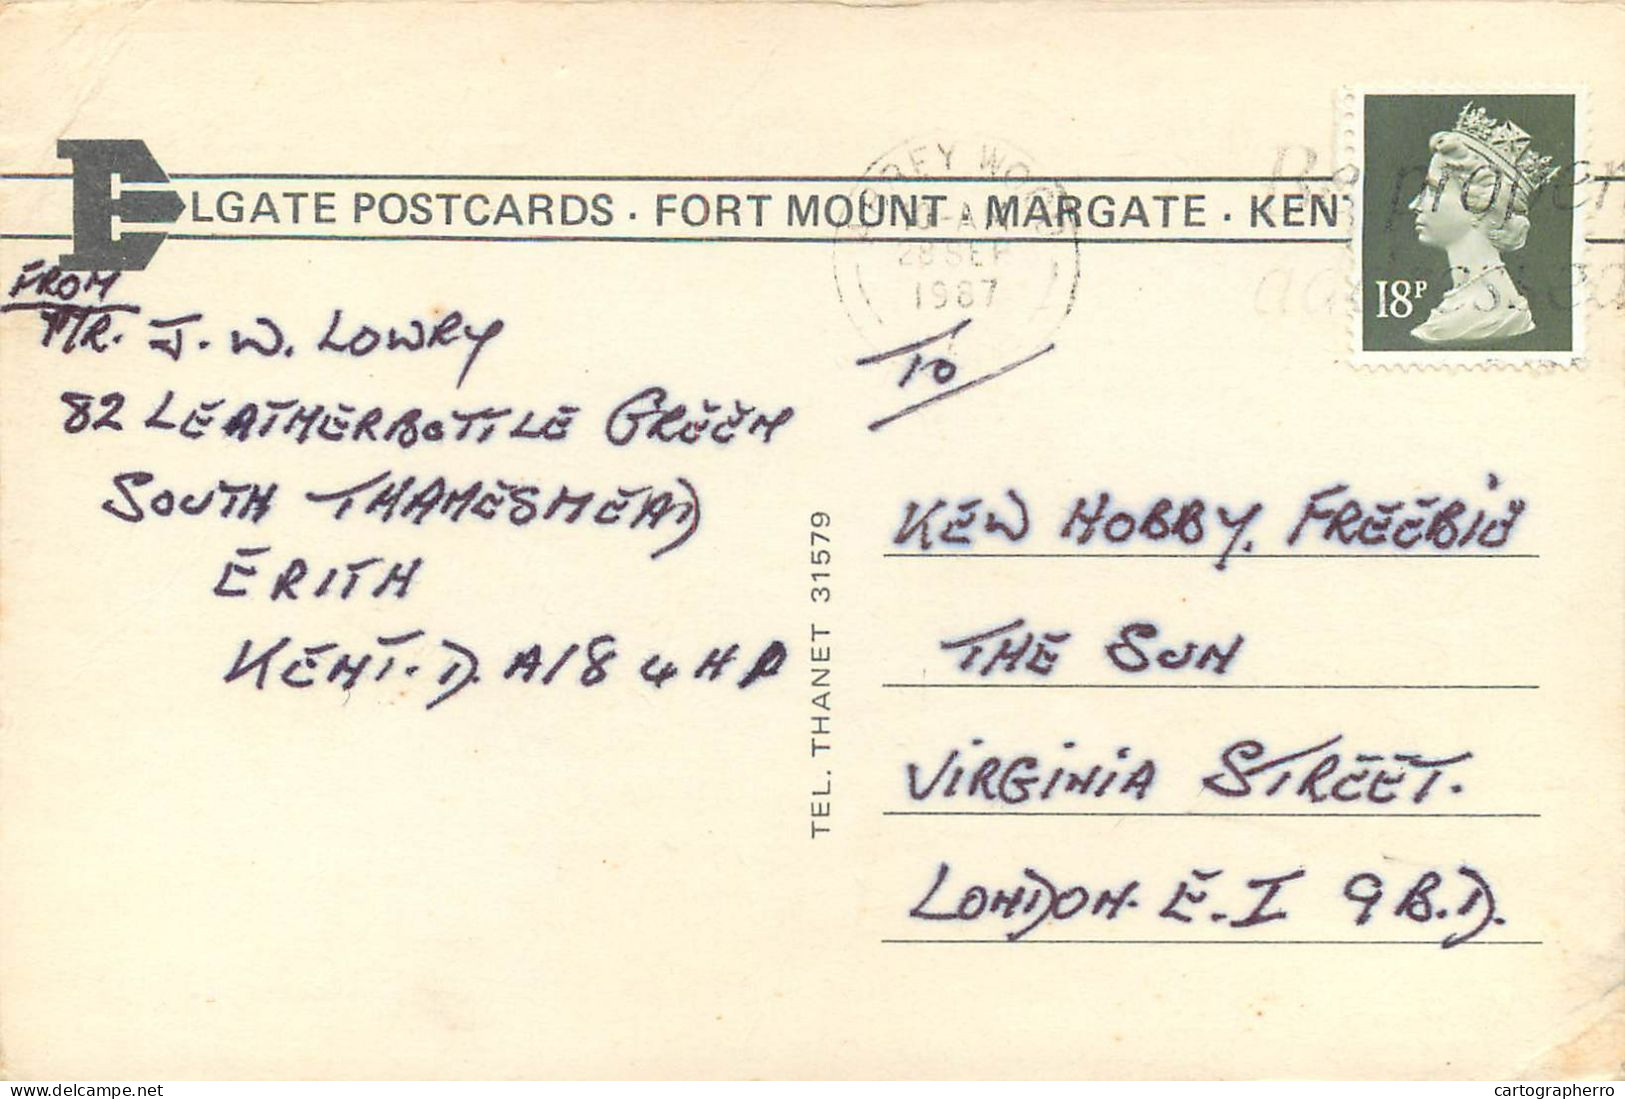 ELGATE POSTCARDS · FORT MOUNT · MARGATE · KENT
ABBEY WOOD
28 SEP
1987
Be proper
addressed
18P
FROM
MR. J. W. LOWRY
82 LEATHERBOTTLE GREEN
SOUTH THAMESMEAD
ERITH
KENT. D. A18 4 H P
TEL. THANET 31579
TO
KEW HOBBY, FREEBIE
THE SUN
VIRGINIA STREET.
LONDON. E.I 9 B.D.
delcampe.net
cartographerro